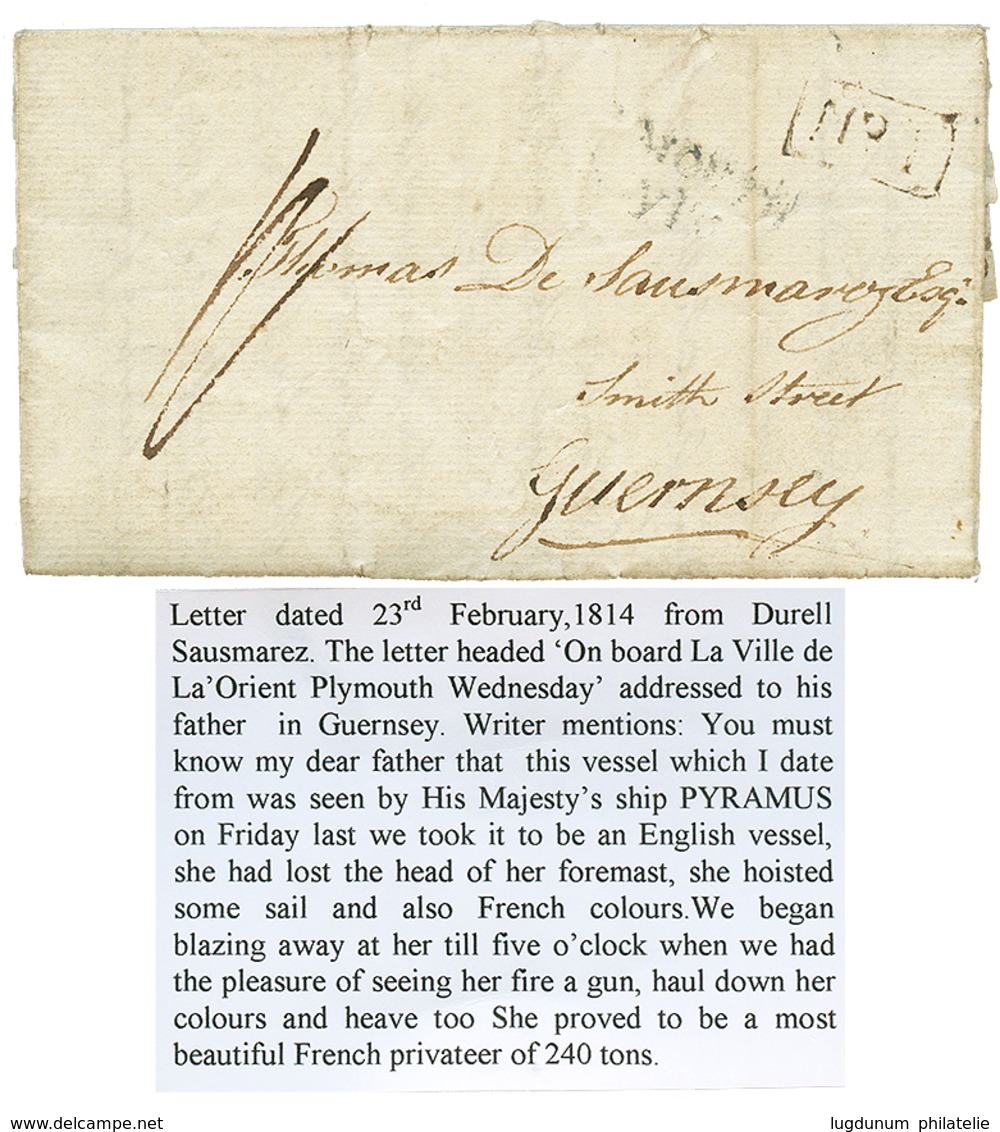 No 1
Thomas De Sausmarez Esqr.
Smith Street
Guernsey
Letter dated 23rd February,1814 from Durell
Sausmarez. The letter headed ‘On board La Ville de
La’Orient Plymouth Wednesday’ addressed to his
father in Guernsey. Writer mentions: You must
know my dear father that this vessel which I date
from was seen by His Majesty’s ship PYRAMUS
on Friday last we took it to be an English vessel,
she had lost the head of her foremast, she hoisted
some sail and also French colours.We began
blazing away at her till five o’clock when we had
the pleasure of seeing her fire a gun, haul down her
colours and heave too She proved to be a most
beautiful French privateer of 240 tons.
www.delcampe.net
lugdunum philatelie